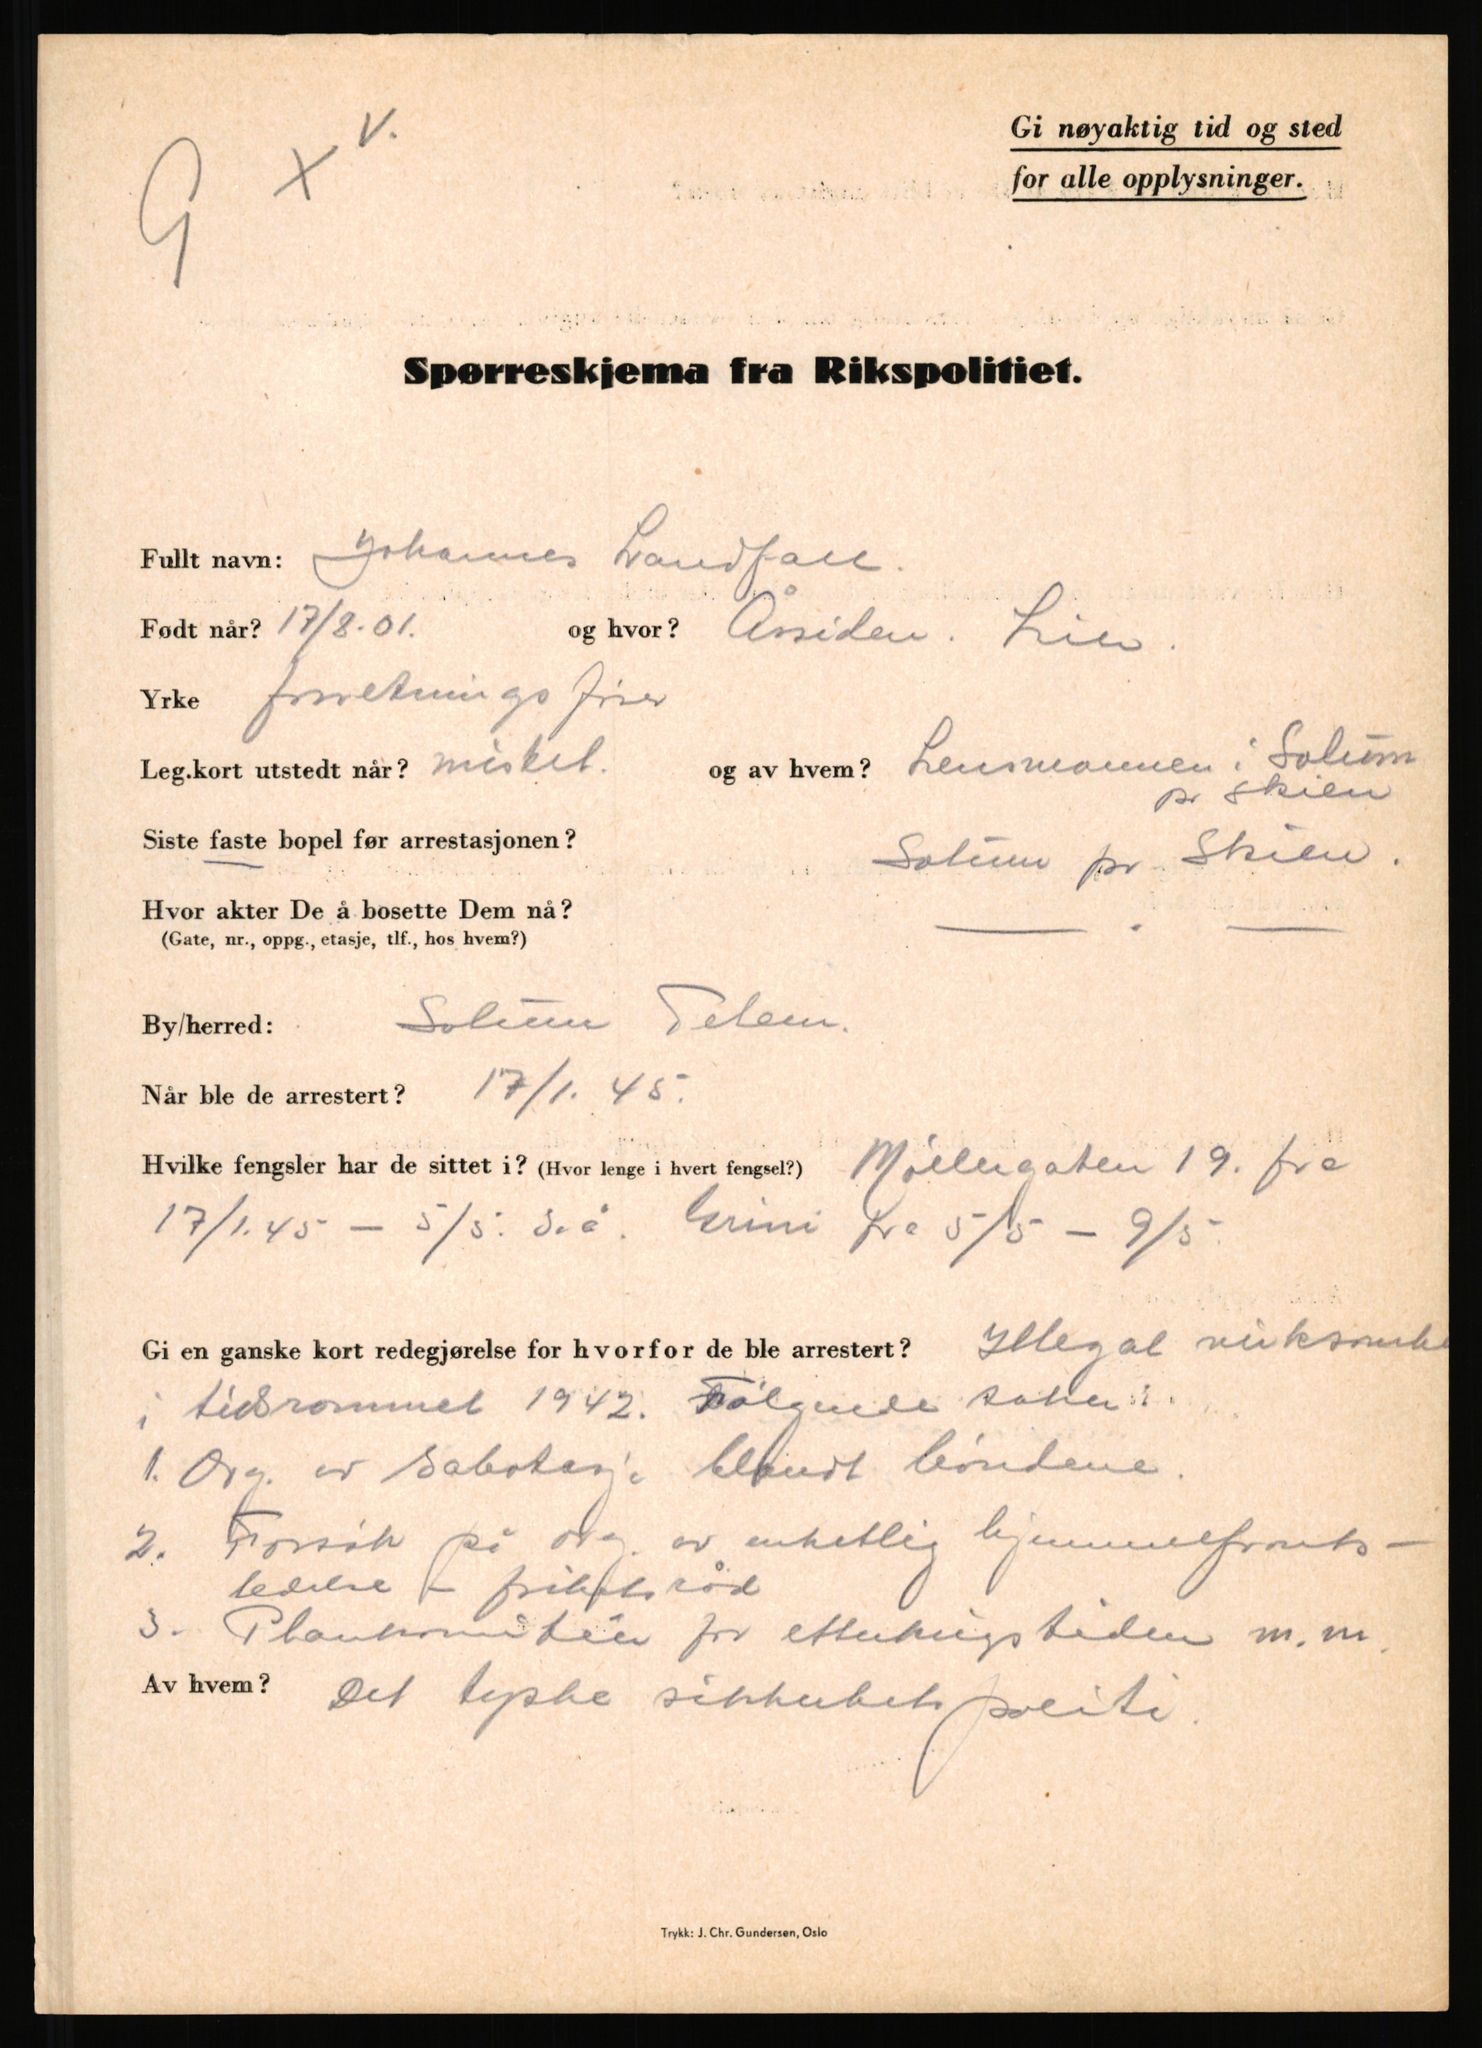 G x v.
Gi nøyaktig tid og sted
for alle opplysninger.
Spørreskjema fra Rikspolitiet.
Fullt navn: Johannes Landfall.
Født når? 17/8.01. og hvor? Åssiden. Lier.
Yrke forretningsfører
Leg.kort utstedt når? mistet. og av hvem? Lensmannen i Solum
pr Skien
Siste faste bopel før arrestasjonen? Solum pr Skien.
Hvor akter De å bosette Dem nå? — . —
(Gate, nr., oppg., etasje, tlf., hos hvem?)
By/herred: Solum Telem.
Når ble de arrestert? 17/1. 45.
Hvilke fengsler har de sittet i? (Hvor lenge i hvert fengsel?) Møllergaten 19. fra
17/1.45 — 5/5. s.å. Grini fra 5/5 — 9/5.
Gi en ganske kort redegjørelse for hvorfor de ble arrestert? Illegal virksomhe
i tidsrommet 1942. Følgende saker:
1. Org. av sabotasje blandt bøndene.
2. Forsøk på org. av enhetlig hjemmefronts-
ledelse – frihetsråd
3. Plankomitéen for etterkrigstiden m.m.
Av hvem? Det tyske sikkerhetspoliti.
Trykk: J. Chr. Gundersen, Oslo